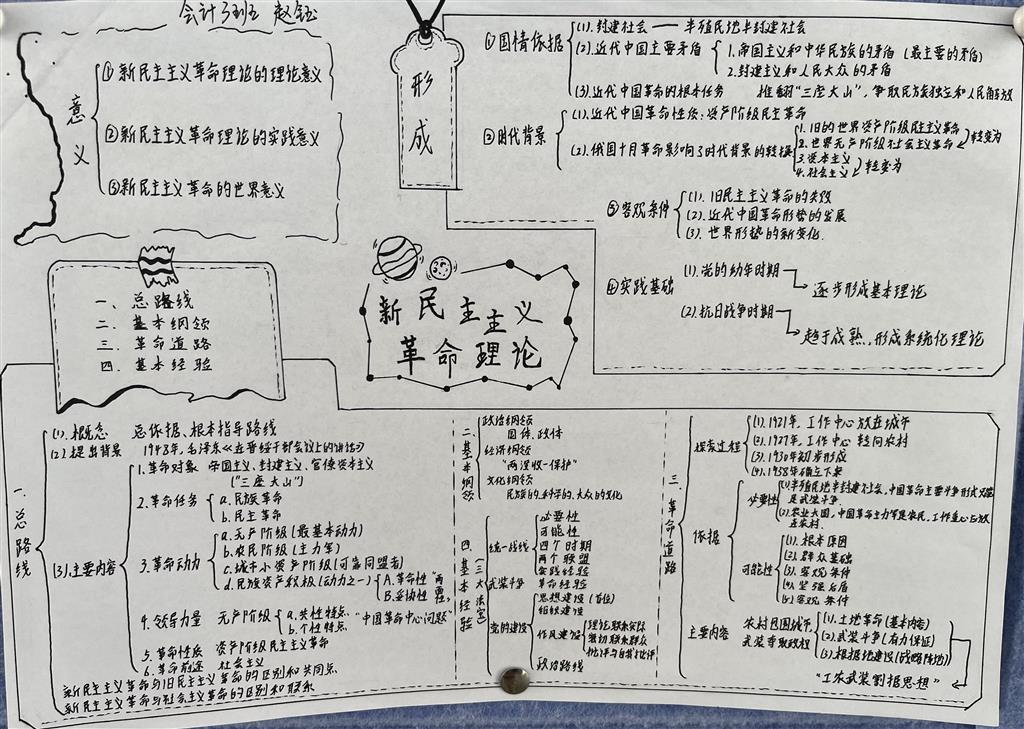 会计3班 赵钰
意义
①新民主主义革命理论的理论意义
②新民主主义革命理论的实践意义
③新民主主义革命的世界意义
形成
①国情依据
(1).封建社会——半殖民地半封建社会
(2).近代中国主要矛盾
1.帝国主义和中华民族的矛盾(最主要的矛盾)
2.封建主义和人民大众的矛盾
(3).近代中国革命的根本任务 推翻"三座大山",争取民族独立和人民解放
②时代背景
(1).近代中国革命性质:资产阶级民主革命
(2).俄国十月革命影响了时代背景的转换
1.旧的世界资产阶级民主主义革命
2.世界无产阶级社会主义革命
转变为
3.资本主义
4.社会主义
转变为
③客观条件
(1).旧民主主义革命的失败
(2).近代中国革命形势的发展
(3).世界形势的新变化.
④实践基础
(1).党的幼年时期
逐步形成基本理论
(2).抗日战争时期
趋于成熟,形成系统化理论
一、总路线
二、基本纲领
三、革命道路
四、基本经验
新民主主义
革命理论
一、总路线
(1).概念 总依据、根本指导路线
(2).提出背景 1948年,毛泽东《在晋绥干部会议上的讲话》
(3).主要内容
1.革命对象 帝国主义、封建主义、官僚资本主义
("三座大山")
2.革命任务
a.民族革命
b.民主革命
3.革命动力
a.无产阶级(最基本动力)
b.农民阶级(主力军)
c.城市小资产阶级(可靠同盟者)
d.民族资产阶级(动力之一)
A.革命性
B.妥协性
"两面性"
4.领导力量 无产阶级
a.共性特点
b.个性特点
"中国革命中心问题"
5.革命性质 资产阶级民主主义革命
6.革命前途 社会主义
新民主主义革命与旧民主主义革命的区别和共同点
新民主主义革命与社会主义革命的区别和联系
二、基本纲领
政治纲领
国体、政体
经济纲领
"两没收一保护"
文化纲领
民族的、科学的、大众的文化
四、基本经验
(三大法宝)
统一战线
必要性
可能性
四个时期
两个联盟
实践经验
武装斗争
革命经验
党的建设
思想建设(首位)
组织建设
作风建设
理论联系实际
密切联系群众
批评与自我批评
政治路线
三、革命道路
探索过程
(1).1921年,工作中心放在城市
(2).1927年,工作中心转向农村
(3).1930年初步形成
(4).1938年确立下来
依据
必要性
(1)半殖民地半封建社会,中国革命主要斗争形式只能
是武装斗争
(2).农业大国,中国革命主力军是农民,工作重心应放
在农村.
可能性
(1).根本原因
(2).群众基础
(3).客观条件
(4).坚强后盾
(5).客观条件
主要内容
农村包围城市,
武装夺取政权
(1).土地革命(基本内容)
(2).武装斗争(有力保证)
(3).根据地建设(战略阵地)
"工农武装割据思想"